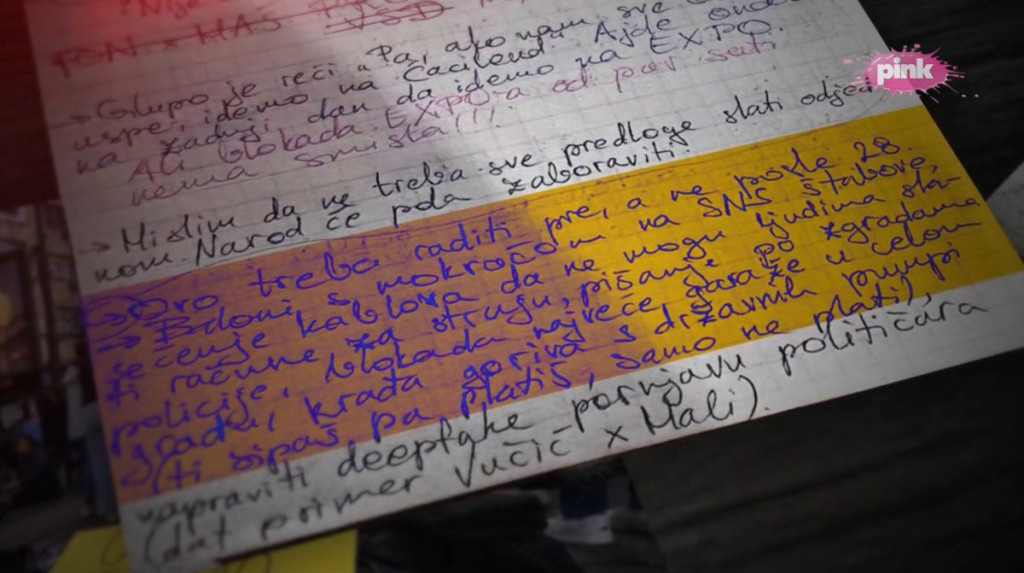 "Nije
FON x MAŠ
→ Glupo je reći "Pa, ako nam sve
uspe, idemo na Ćaciland. Ajde onda
na zadnji dan da idemo na EXPO.
Ali blokada EXPO-a od par sati
nema smisla!!!
→ Mislim da ne treba sve predloge slati odjed-
nom. Narod će pola zaboraviti.
→ Ovo treba raditi pre, a ne posle 28.
→ Bdoni s mokraćom na SNS štabove,
sečenje kablova da ne mogu ljudima sla-
ti račune za struju, pišanje po zgradama
policije, blokada najveće garaže u celom
gradu, krađa goriva s državnih pumpi
(ti sipaš, pa platiš, samo ne platiš),
napraviti deepfake pornjavu političara
(dat primer Vučić x Mali).
pink